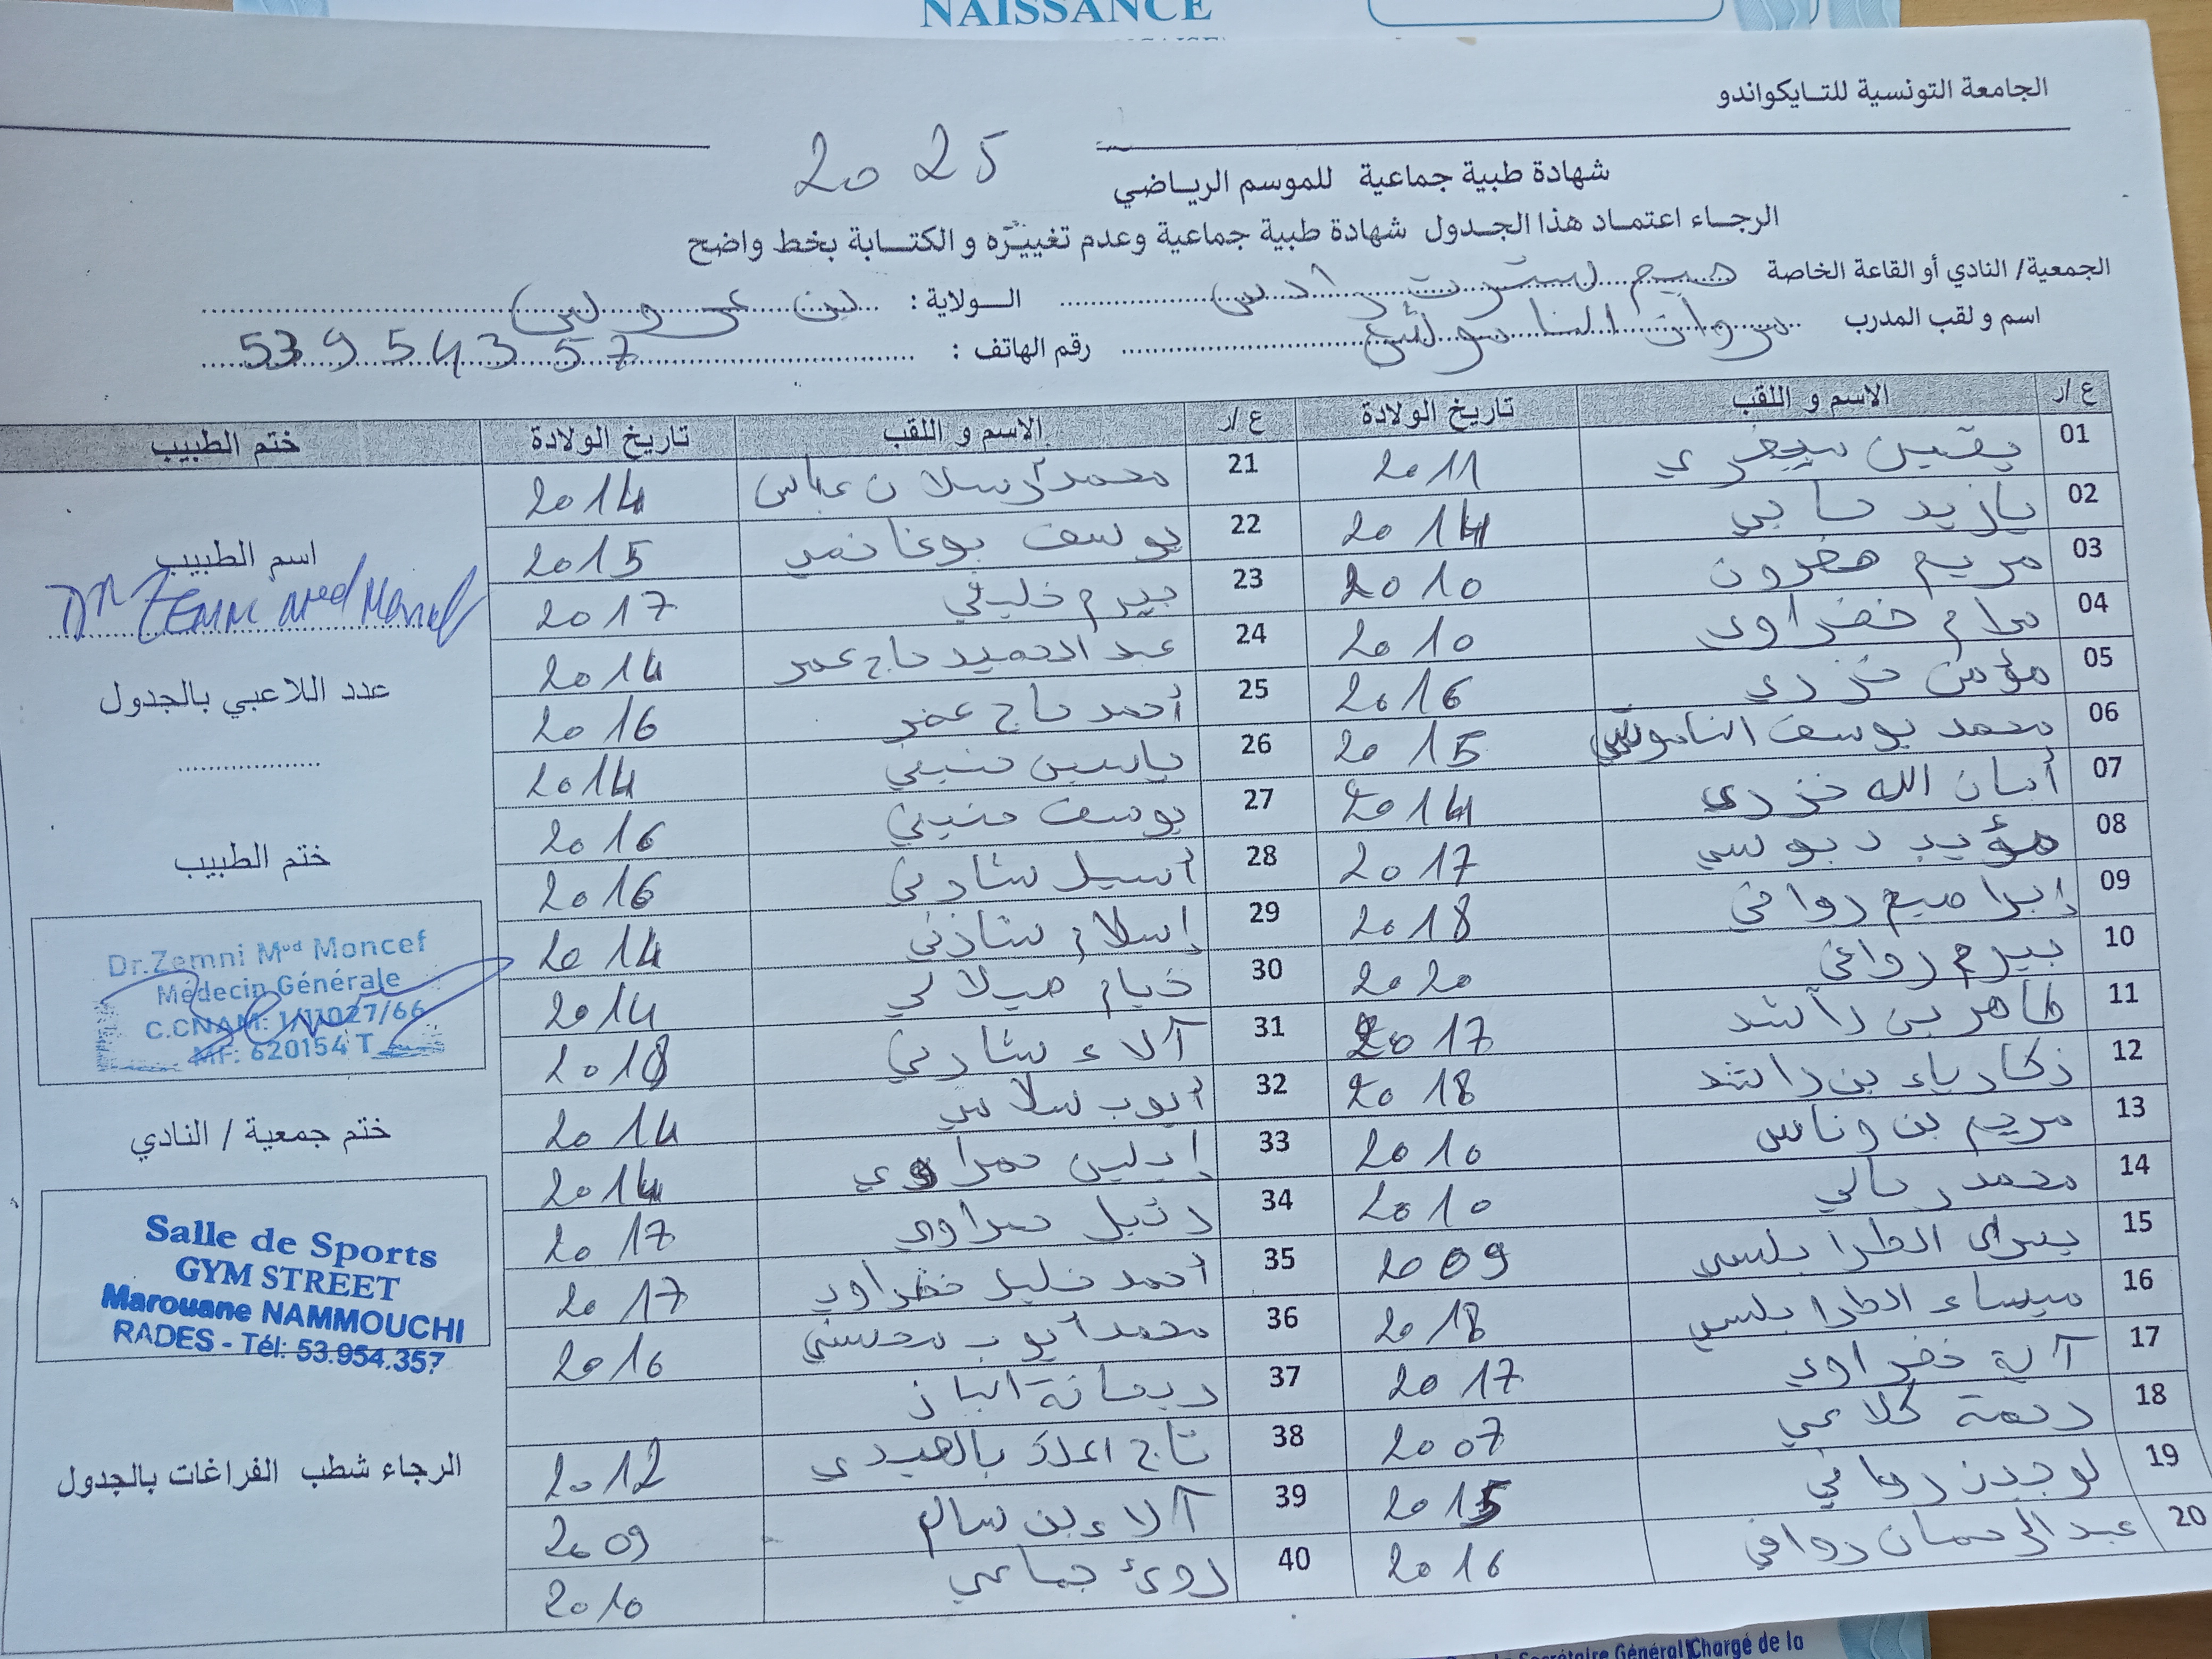 NAISSANCE
الجامعة التونسية للتايكواندو
شهادة طبية جماعية للموسم الرياضي 2025
الرجاء اعتماد هذا الجدول شهادة طبية جماعية وعدم تغييره و الكتابة بخط واضح
الجمعية/ النادي أو القاعة الخاصة جيم ستريت رادس الولاية : بن عروس
اسم و لقب المدرب مروان الناموشي رقم الهاتف : 53954357
ع/ر الاسم و اللقب تاريخ الولادة ع/ر الاسم و اللقب تاريخ الولادة ختم الطبيب
01 يقين 2011 21 محمد أرسلان عباس 2014
02 يازيد حاجي 2014 22 يوسف بوغانمي 2015
03 مريم 2010 23 بيرم خليفي 2017
04 مرام خضراوي 2010 24 عبد الحميد حاج عمر 2014
05 مؤمن خزري 2016 25 أحمد حاج عمر 2016
06 محمد يوسف الناموشي 2015 26 ياسين 2014
07 أمان الله خزري 2014 27 يوسف 2016
08 مؤيد دبوسي 2017 28 أسيل شاذني 2016
09 إبراهيم روافي 2018 29 إسلام شاذني 2014
10 بيرم روافي 2020 30 خيام جيلالي 2014
11 طاهر بن راشد 2017 31 آلاء شارني 2018
12 زكارياء بن راشد 2018 32 أيوب 2014
13 مريم بن وناس 2010 33 إيلين حمراوي 2014
14 محمد رحالي 2010 34 حمراوي 2017
15 الطرابلسي 2009 35 أحمد خليل خضراوي 2017
16 ميساء الطرابلسي 2018 36 محمد أيوب محسني 2016
17 آية خضراوي 2017 37 ريحانة الباز
18 رحمة كلاعي 2007 38 تاج بالهيدي 2012
19 لوجين روافي 2015 39 آلاء بن سالم 2009
20 عبد الرحمان روافي 2016 40 روئ جماعي 2010
اسم الطبيب
Dr Zemni Med Moncef
عدد اللاعبي بالجدول
ختم الطبيب
Dr.Zemni Med Moncef
Médecin Générale
C.CNAM: 1/11027/66
MF: 620154 T
ختم جمعية / النادي
Salle de Sports
GYM STREET
Marouane NAMMOUCHI
RADES - Tél: 53.954.357
الرجاء شطب الفراغات بالجدول
Secrétaire Général Chargé de la